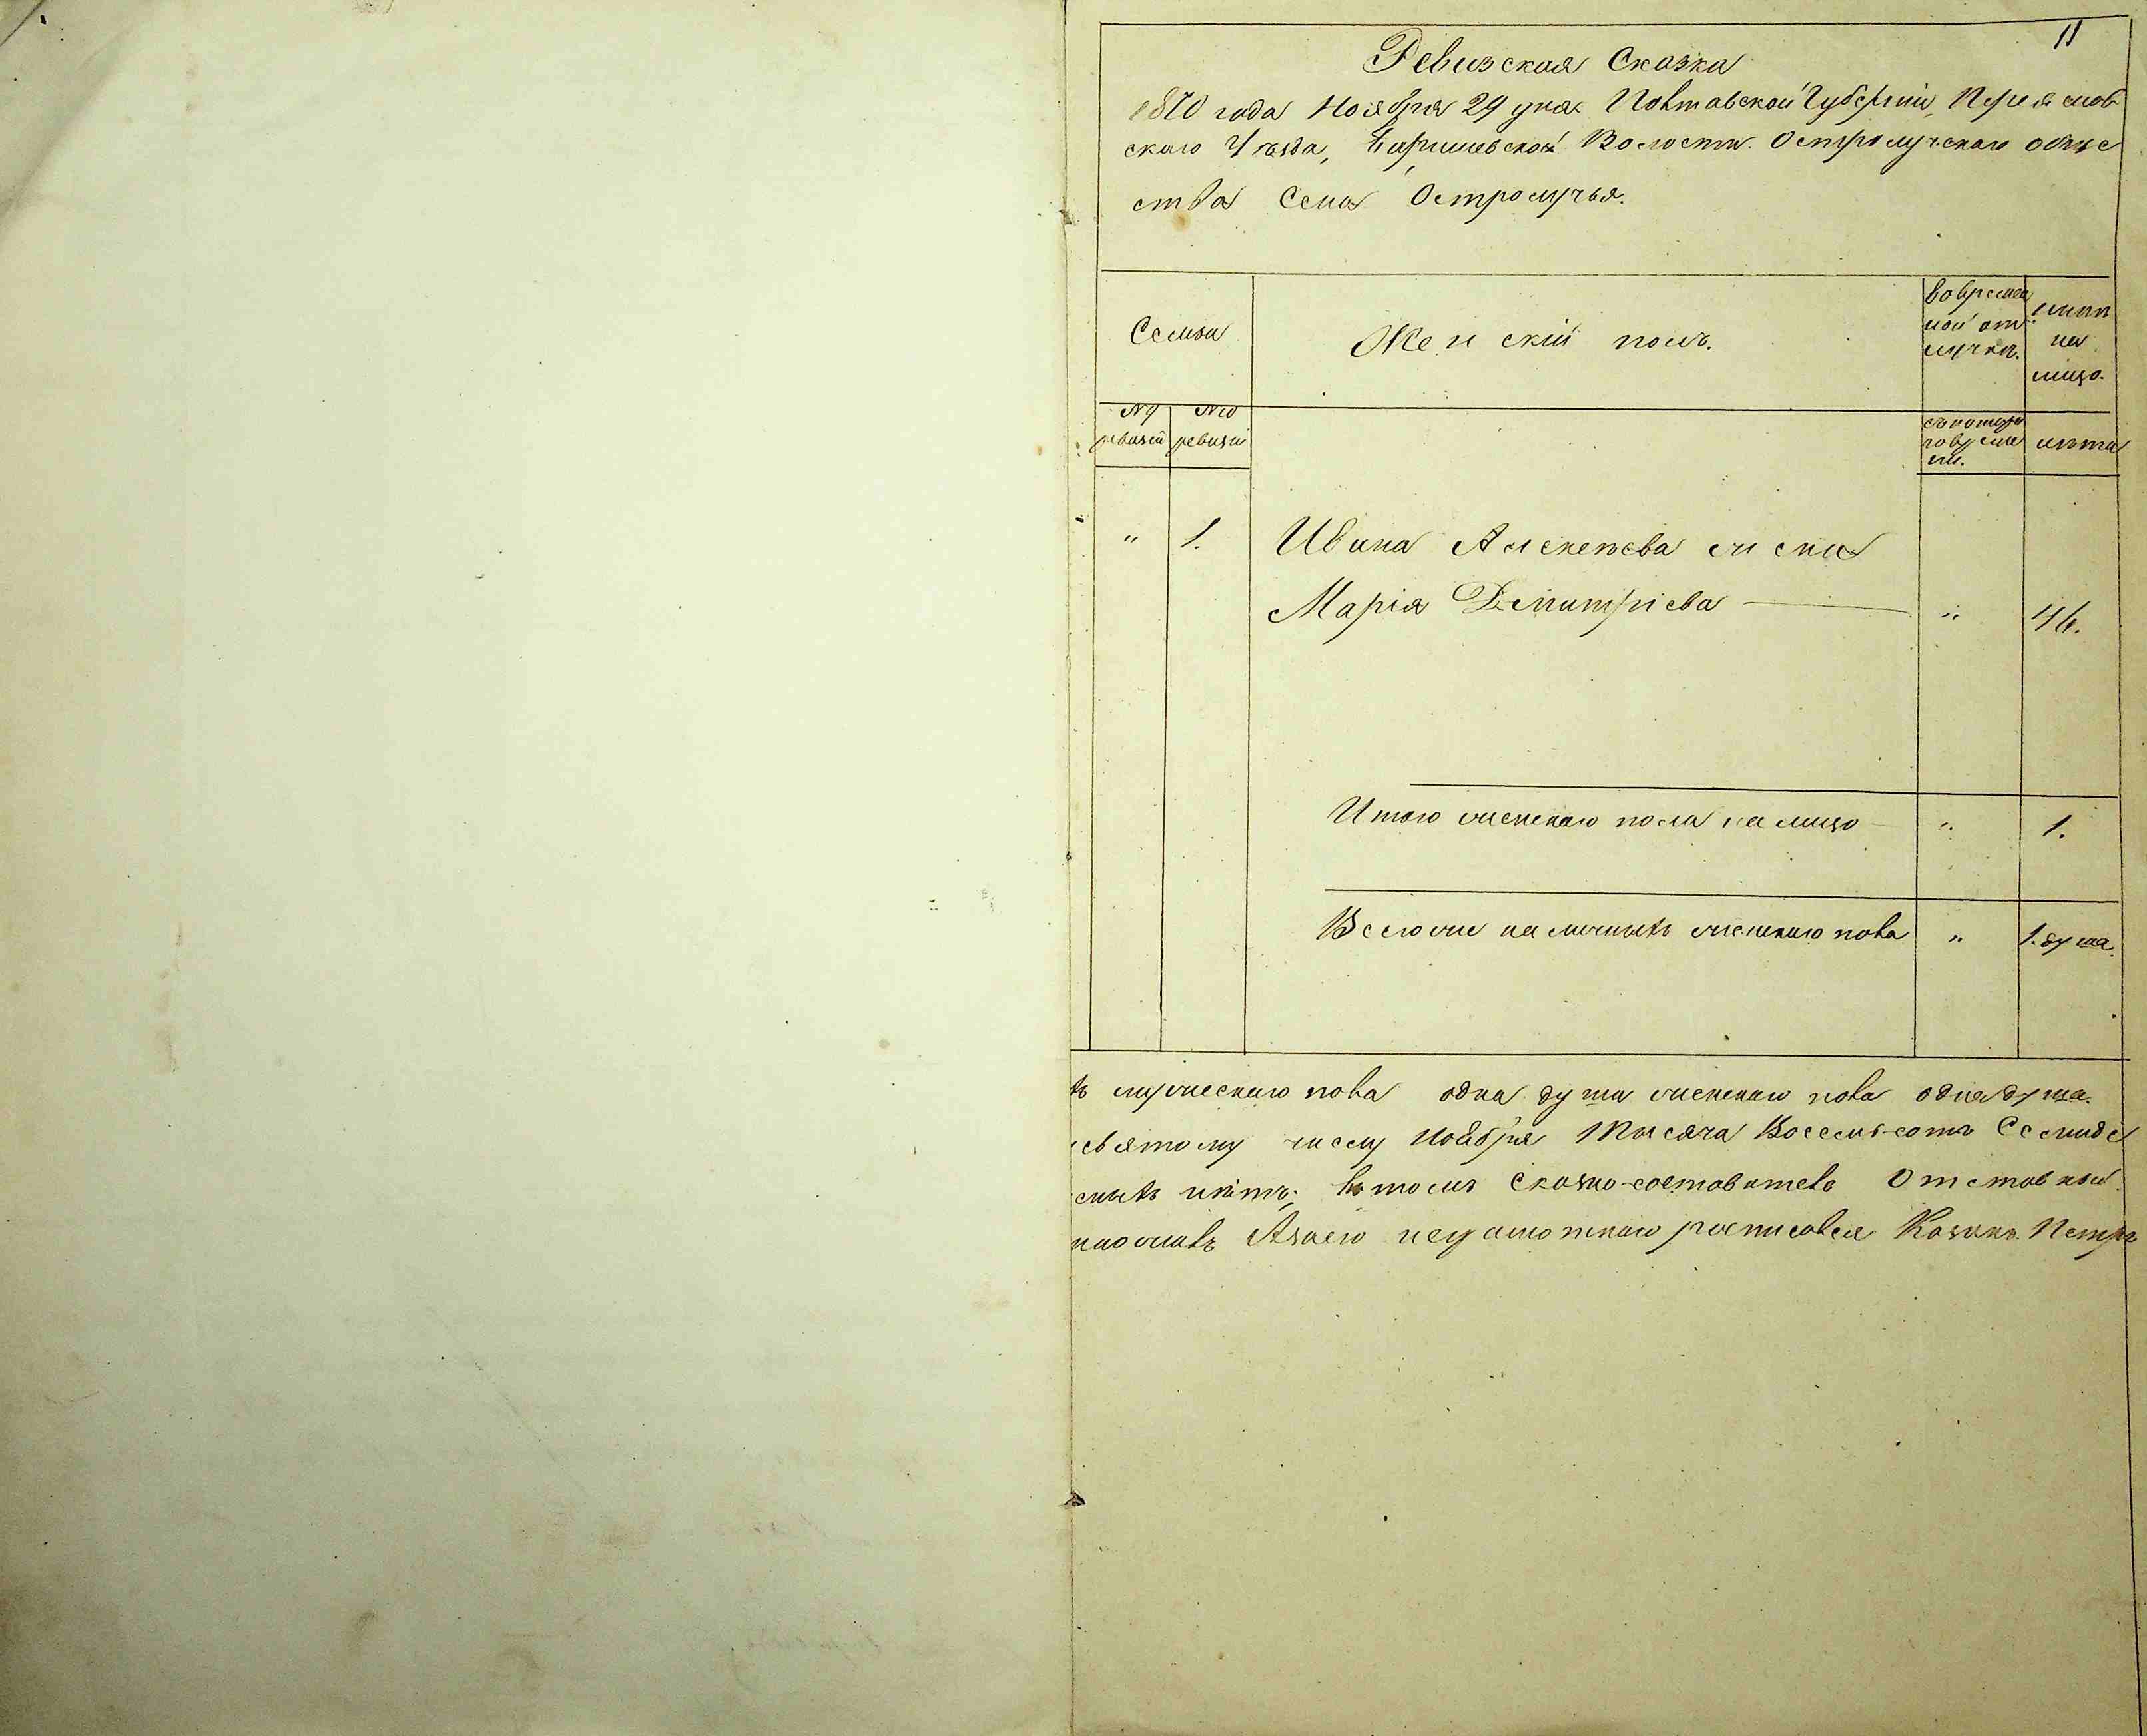 11
Ревизская Сказка
1870 года Ноября 29 дня Полтавской Губерніи, Переяслов
скаго Уѣзда, Баришевской Волости. Остролучскаго обще
ства Села Остролучья.
Семьи
Женскій полъ.
во времен
ной от
лучкѣ.
нынѣ
на
лицо.
№ 9
ревизіи
№ 10
ревизіи
съ котора
го време
ни.
лѣта
" 1. Ивана Алексѣева жена
Марія Дмитріева — " 46.
Итого женскаго пола на лицо — " 1.
Всего же наличныхъ женскаго пола " 1. душа.
ъ мужескаго пола одна душа женскаго пола одна душа.
евятому числу Ноября Тысяча Восемь-сотъ Семиде
ныхъ нѣтъ; въ томъ Сказко-составитель Отставной
Азаего неграмотнаго росписался Козакъ Петръ